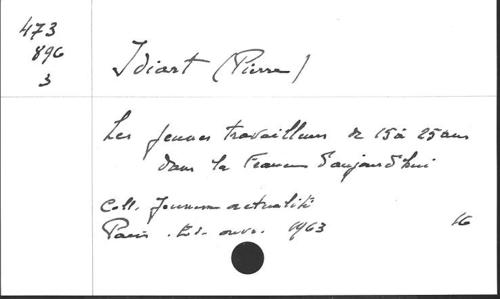 473
896
3
Idiart (Pierre)
Les jeunes travailleurs de 15 à 25 ans
dans la France d'aujourd'hui
Coll. Jeunesse actualité
Paris. Ed. ouv. 1963
16